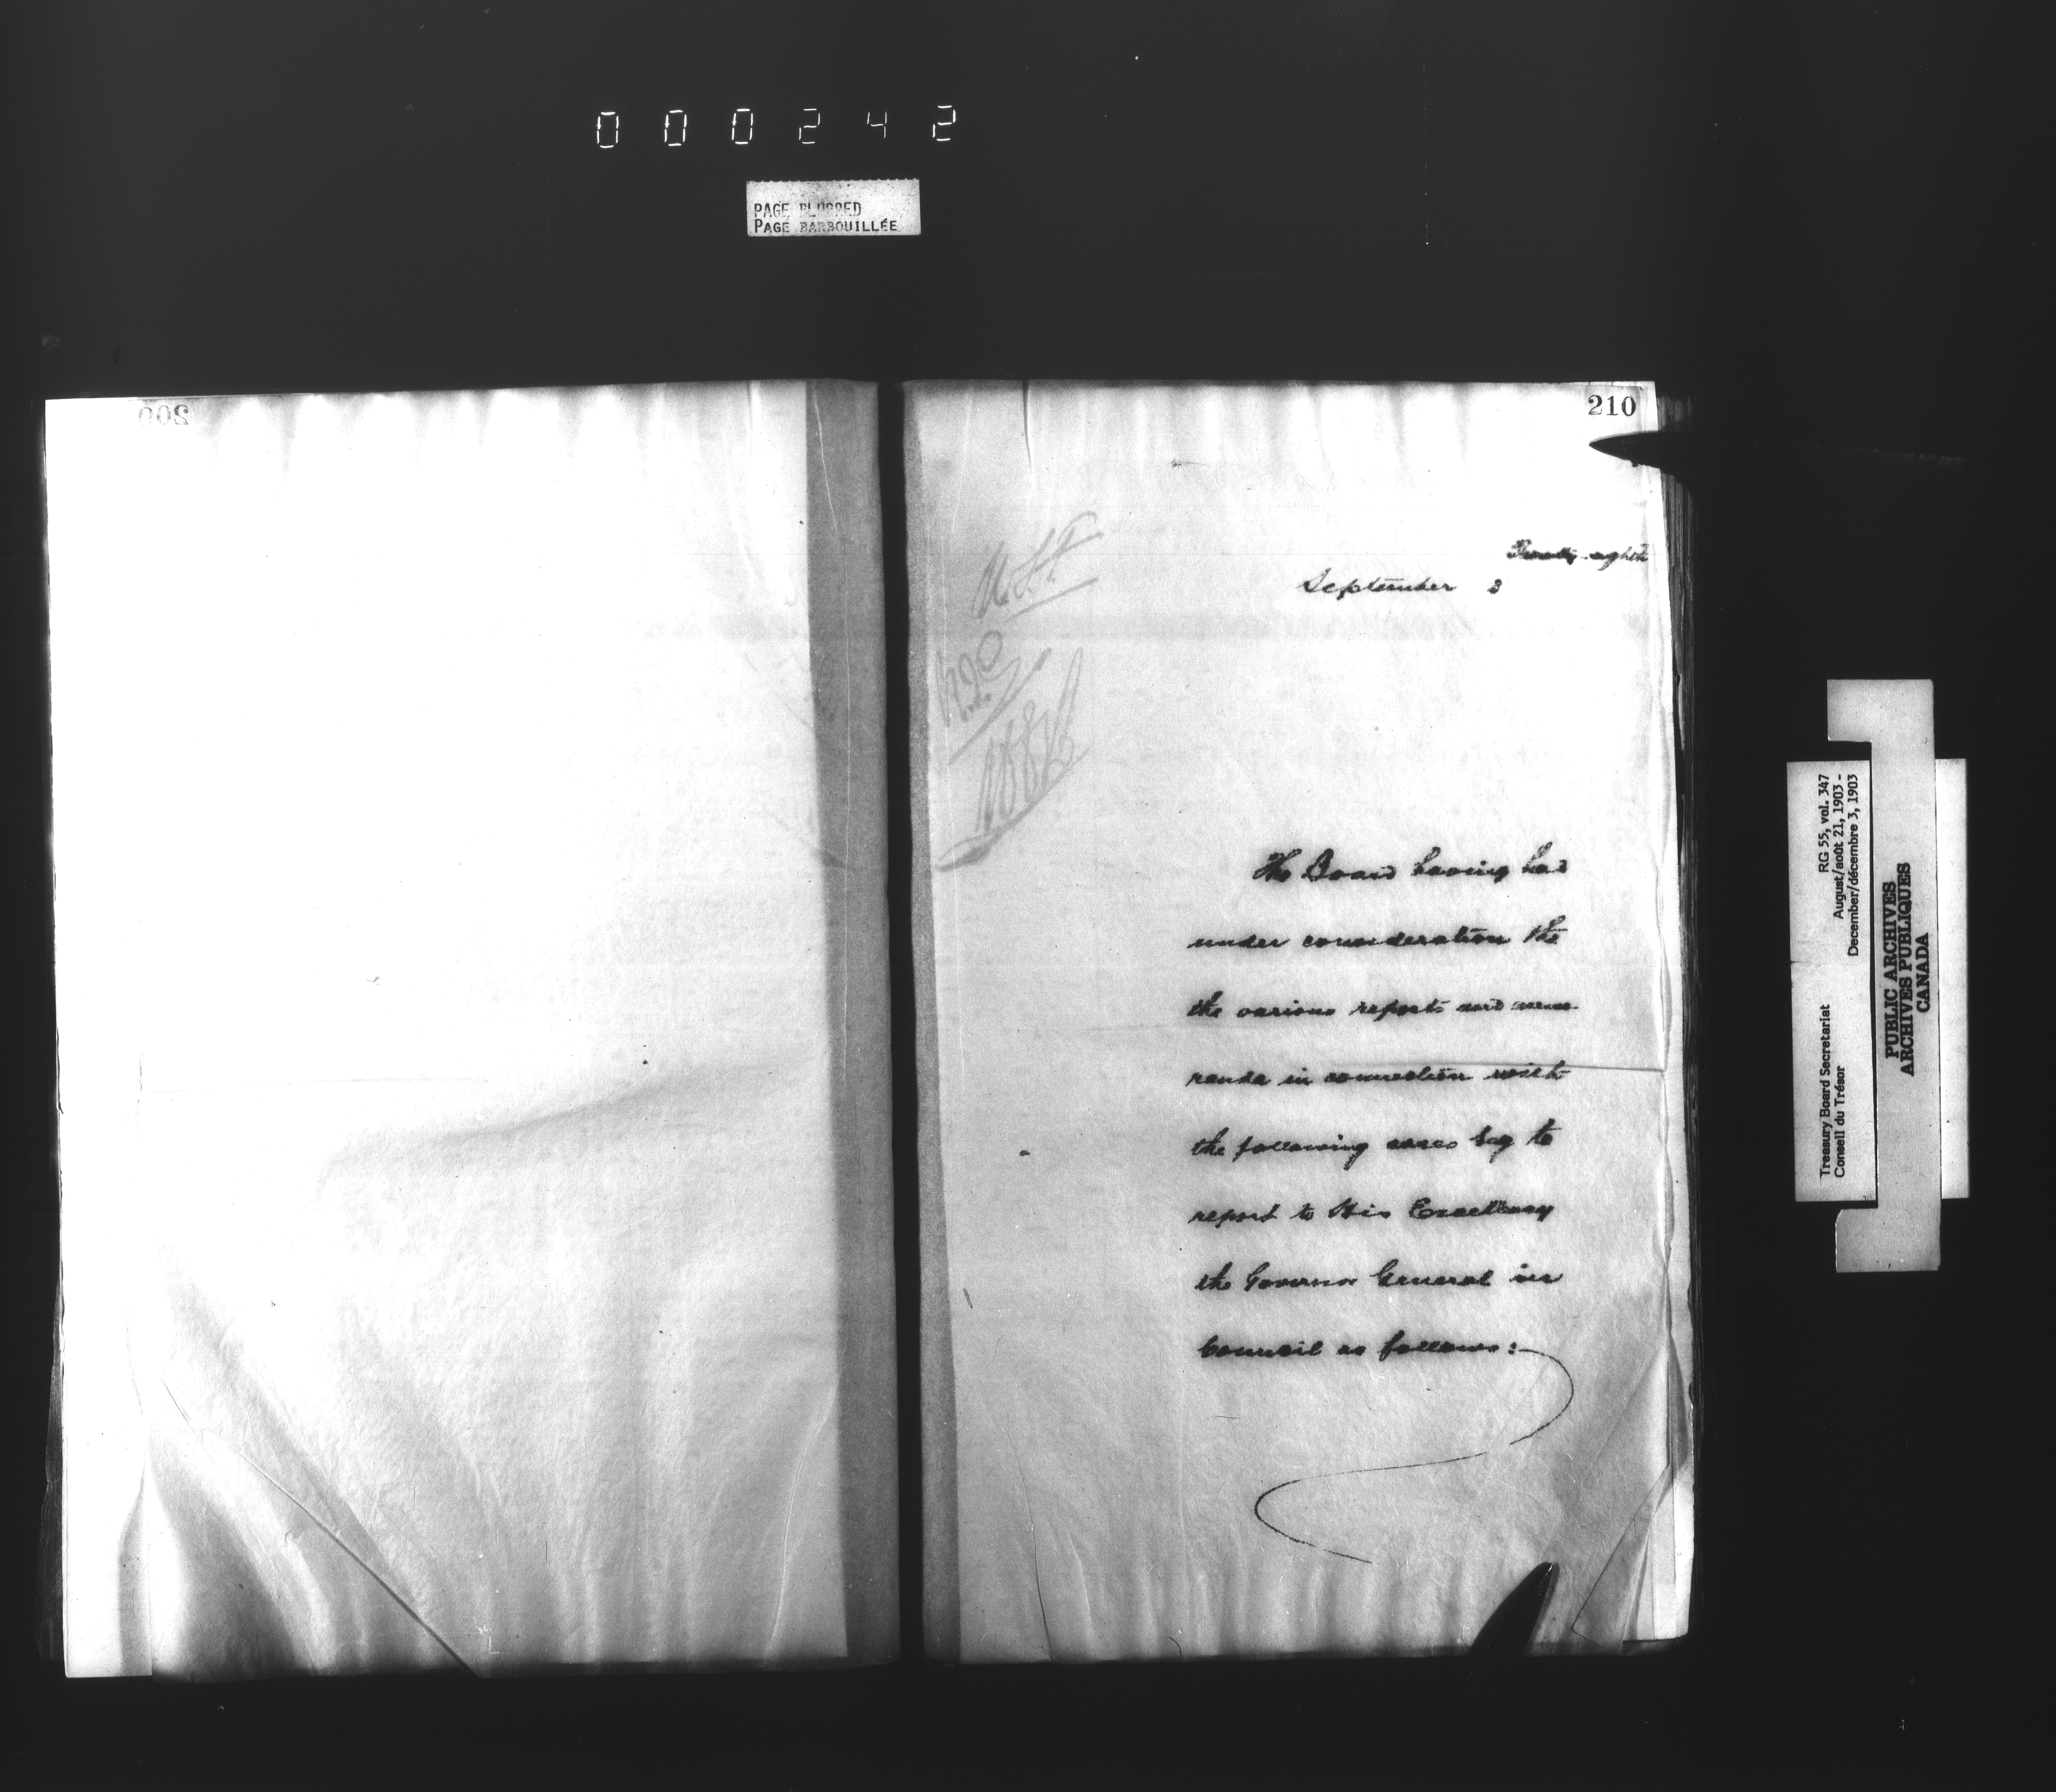 000242
PAGE BLURRED
PAGE BARBOUILLÉE
209
210
Twenty-eighth
September 3
The Board having had
under consideration the
the various reports and memo
randa in connection with
the following cases beg to
report to His Excellency
the Governor General in
Council as follows:
Treasury Board Secretariat
Conseil du Trésor
RG 55, vol. 347
August/août 21, 1903 -
December/décembre 3, 1903
PUBLIC ARCHIVES
ARCHIVES PUBLIQUES
CANADA